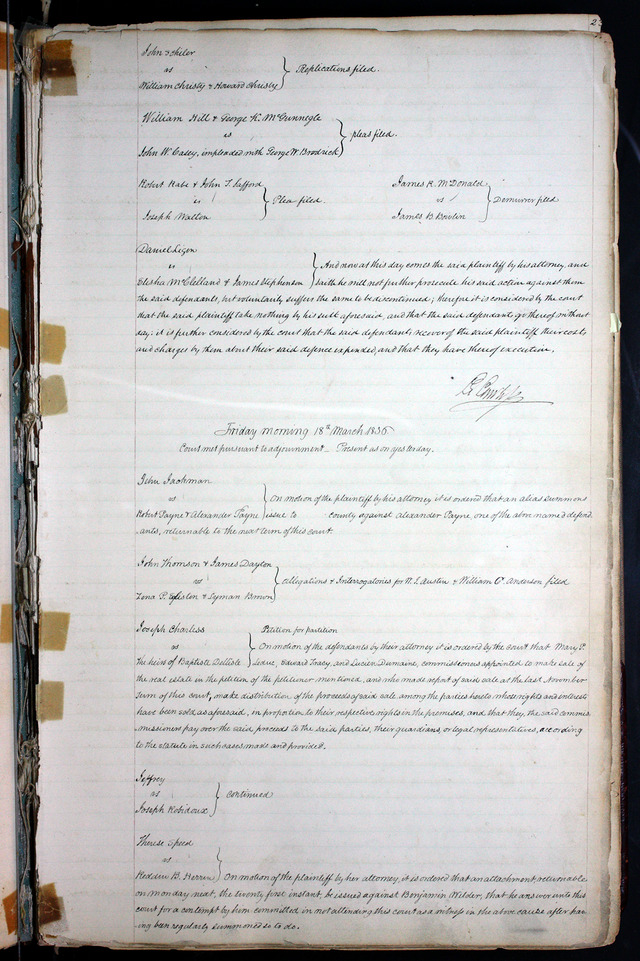 2
John
vs } Replications filed.
William Christy & Howard Christy
William Hill & George K. McGunnegle
vs } pleas filed.
John W. Casey, impleaded with George W. Brodrick
Robert Rabe & John T. Safford James R. McDonald
vs } Plea filed. vs } Demurrer filed
Joseph Walton James B. Bowlin
Daniel Ligon
vs } And now at this day comes the said plaintiff by his attorney, and
Elisha McClelland & James Stephenson saith he will not further prosecute his said action against them
the said defendants, but voluntarily suffers the same to be discontinued; therefore it is considered by the court
that the said plaintiff take nothing by his suit aforesaid, and that the said defendants go thereof without
day: it is further considered by the court that the said defendants recover of the said plaintiff their costs
and charges by them about their said defence expended, and that they have thereof execution.
Friday morning 18th March 1836
Court met pursuant to adjournment – Present as on yesterday.
John Jackman
vs } On motion of the plaintiff by his attorney it is ordered that an alias summons
Robert Payne & Alexander Payne issue to county against Alexander Payne, one of the above named defend
ants, returnable to the next term of this court.
John Thomson & James Dayton
vs } Allegations & Interrogatories for N. L. Austin & William C. Anderson filed
Zena P. & Lyman Brown
Joseph Charless Petition for partition
vs } On motion of the defendants by their attorney it is ordered by the court that Mary P.
The heirs of Baptiste Delisle Leduc, Edward Tracy, and Lucien Dumaine, commissioners appointed to make sale of
the real estate in the petition of the petitioner mentioned, and who made report of said sale at the last November
Term of this court, make distribution of the proceeds of said sale among the parties hereto whose rights and interests
have been sold as aforesaid, in proportion to their respective rights in the premises, and that they, the said commis
missioners pay over the said proceeds to the said parties, their guardians, or legal representatives, according
to the statute in such cases made and provided.
Jeffrey
vs } Continued
Joseph Robidoux
Therese Speed
vs
Reddin B. Herrin } On motion of the plaintiff by her attorney, it is ordered that an attachment, returnable
on monday next, the twenty first instant, be issued against Benjamin Wilder, that he answer unto this
court for a contempt by him committed in not attending this court as a witness in the above cause after hav
ing been regularly summoned so to do.